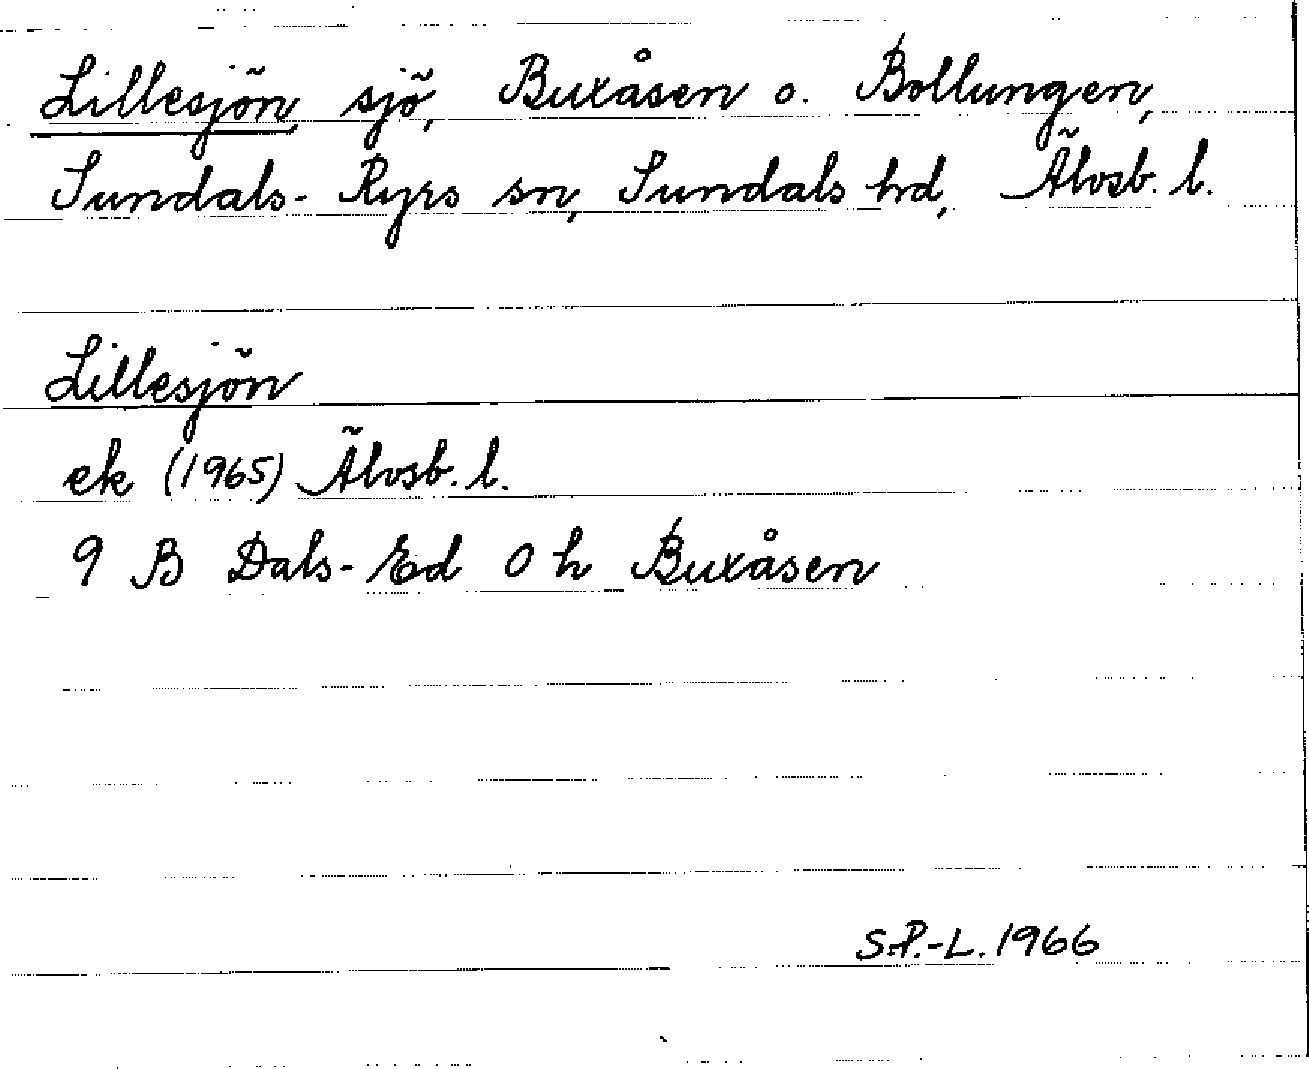 Lillesjön, sjö, Buxåsen o. Bollungen,
Sundals-Ryrs sn, Sundals hd, Älvsb. l.
Lillesjön
ek (1965) Älvsb. l.
9 B Dals-Ed 0 h Buxåsen
S.P.-L. 1966